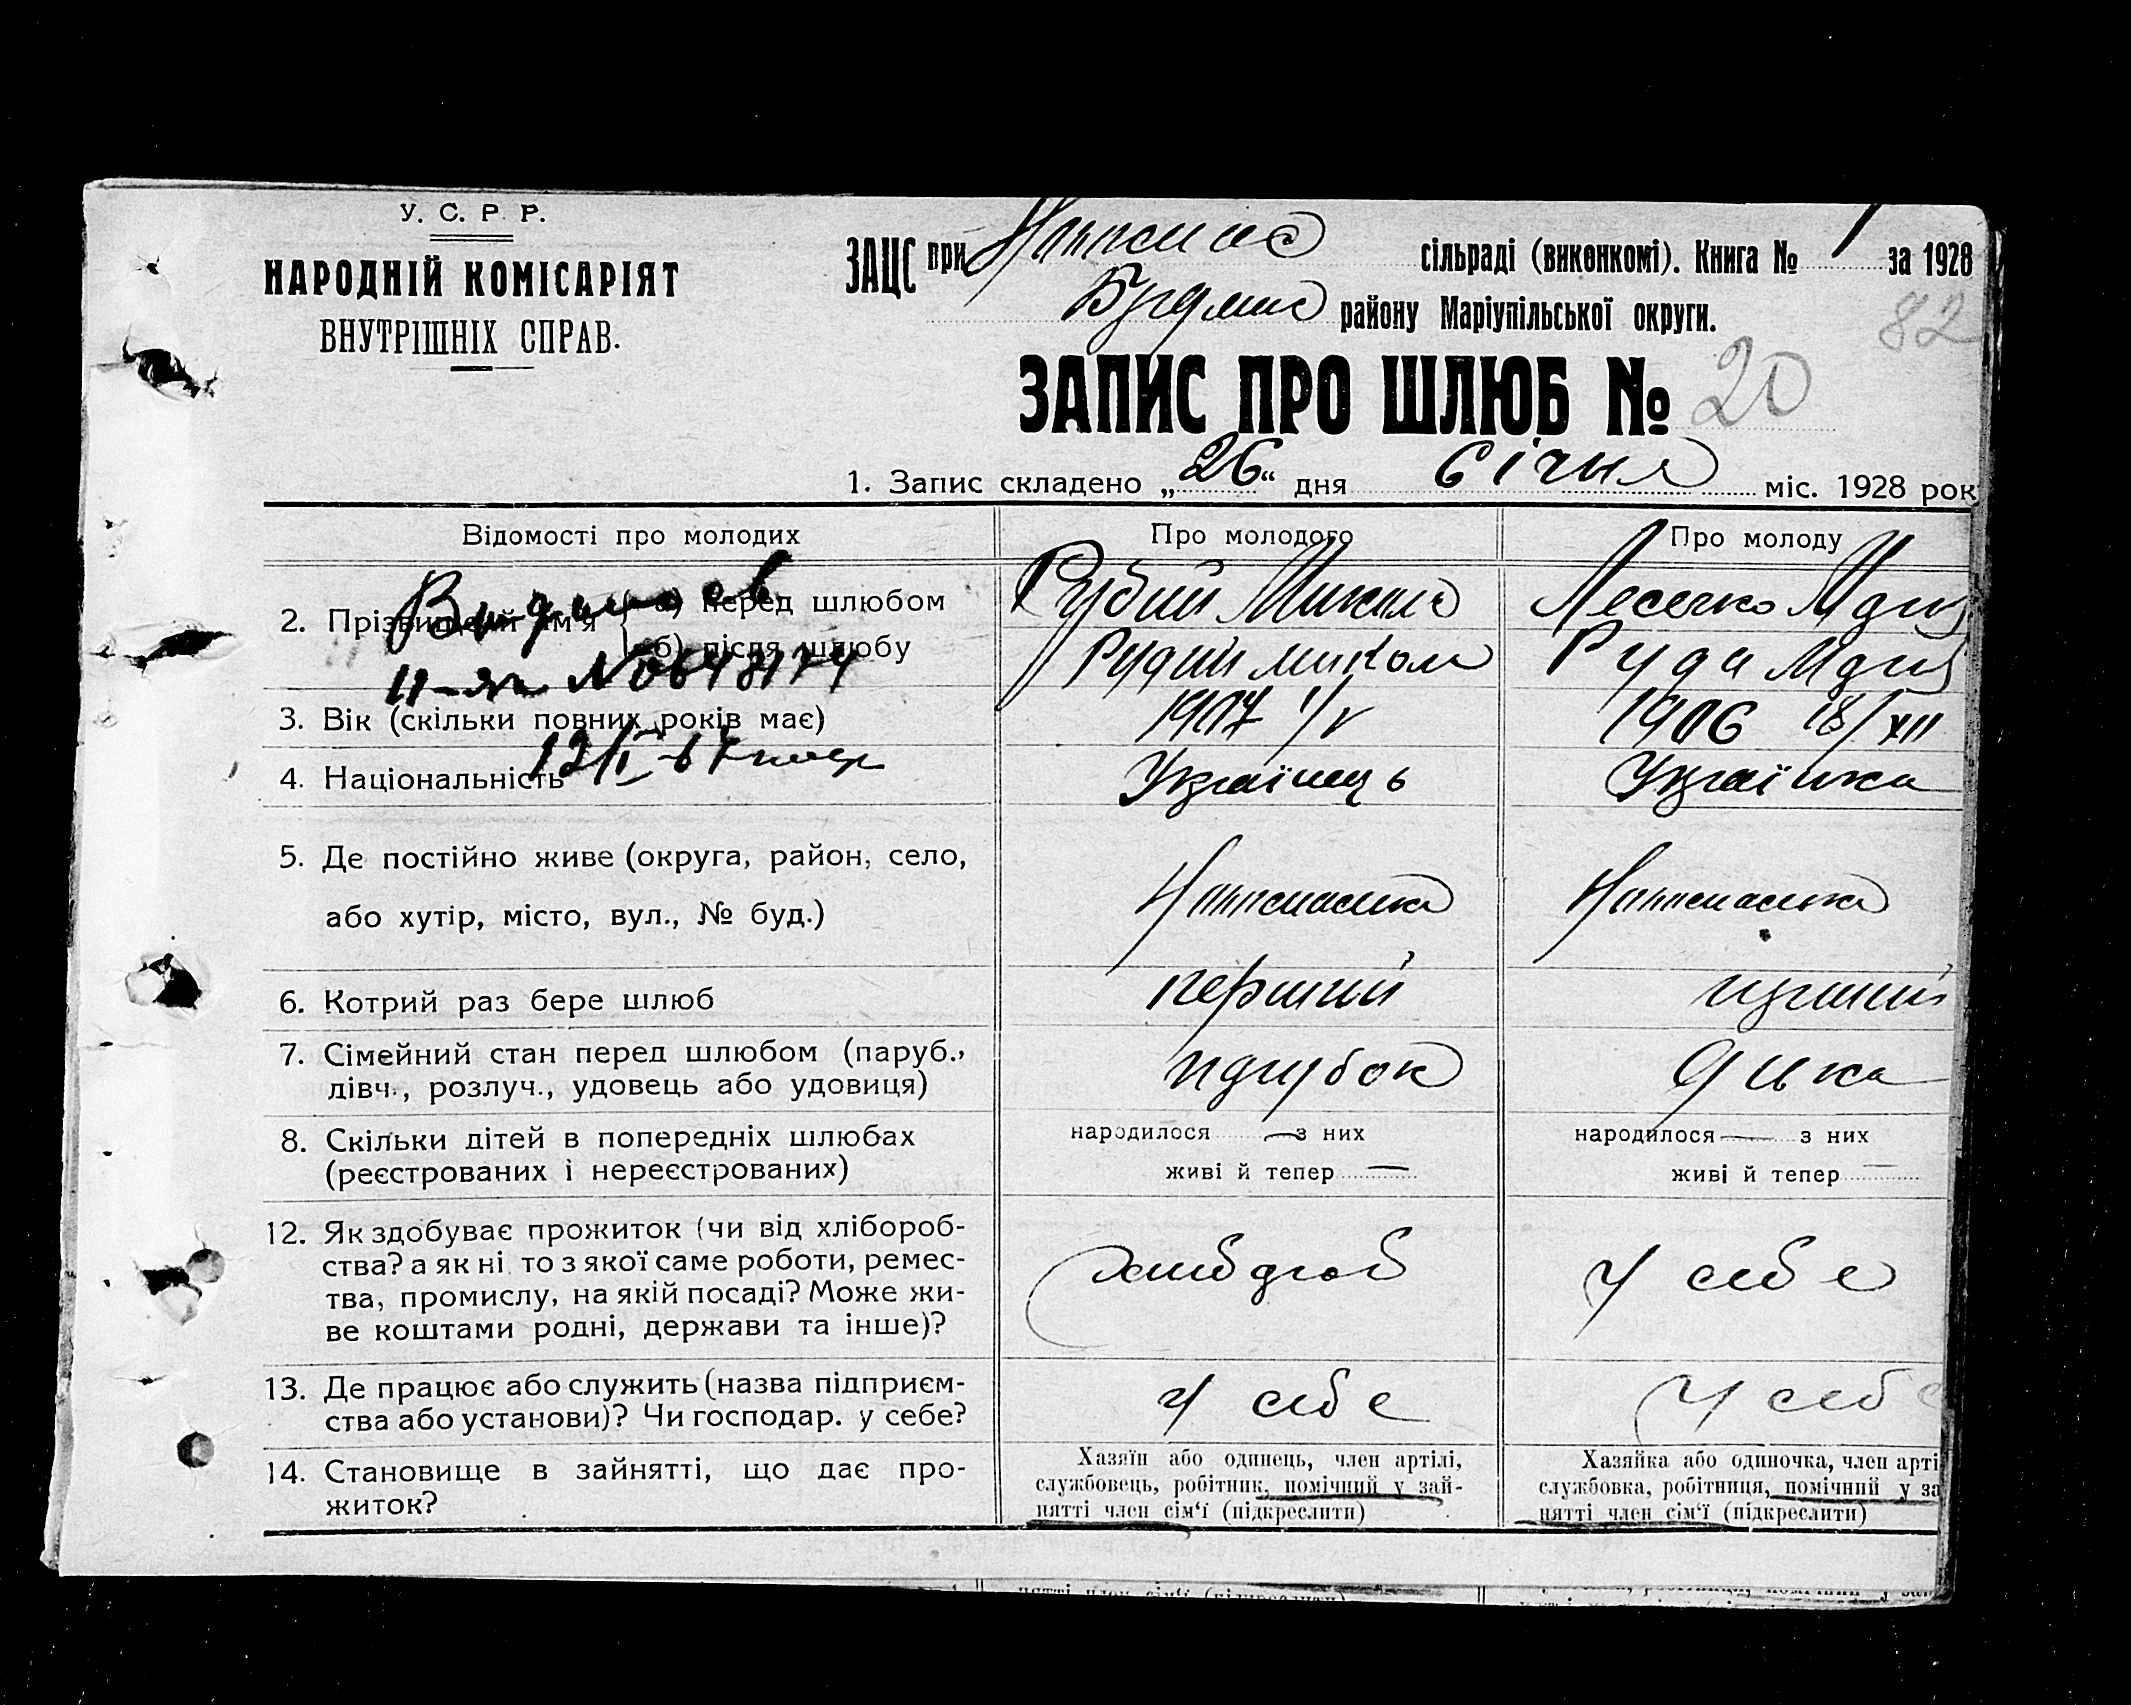 У. С. Р. Р.
НАРОДНІЙ КОМІСАРІЯТ
ВНУТРІШНІХ СПРАВ.
ЗАЦС при сільраді (виконкомі). Книга № 1 за 1928
району Маріупільської округи.
82
ЗАПИС ПРО ШЛЮБ № 20
1. Запис складено „26“ дня січня міс. 1928 рок
Відомості про молодих
Про молодого
Про молоду
2. Прізвище й ім'я { а) перед шлюбом
б) після шлюбу
Рудий Микола
Рудий Микола
Лесечко Марія
Руда Марія
№ 0648174
3. Вік (скільки повних років має)
1907 1/V
1906 18/XII
4. Національність
Українець
Українка
5. Де постійно живе (округа, район, село,
або хутір, місто, вул., № буд.)
6. Котрий раз бере шлюб
перший
перший
7. Сімейний стан перед шлюбом (паруб.,
дівч., розлуч., удовець або удовиця)
парубок
дівка
8. Скільки дітей в попередніх шлюбах
(реєстрованих і нереєстрованих)
народилося — з них
живі й тепер —
народилося — з них
живі й тепер —
12. Як здобуває прожиток (чи від хлібороб-
ства? а як ні то з якої саме роботи, ремес-
тва, промислу, на якій посаді? Може жи-
ве коштами родні, держави та інше)?
хлібороб
У себе
13. Де працює або служить (назва підприєм-
ства або установи)? Чи господар. у себе?
У себе
У себе
14. Становище в зайнятті, що дає про-
житок?
Хазяїн або одинець, член артілі,
службовець, робітник, помічний у зай-
нятті член сім'ї (підкреслити)
Хазяйка або одиночка, член арті
службовка, робітниця, помічний у за
нятті член сім'ї (підкреслити)